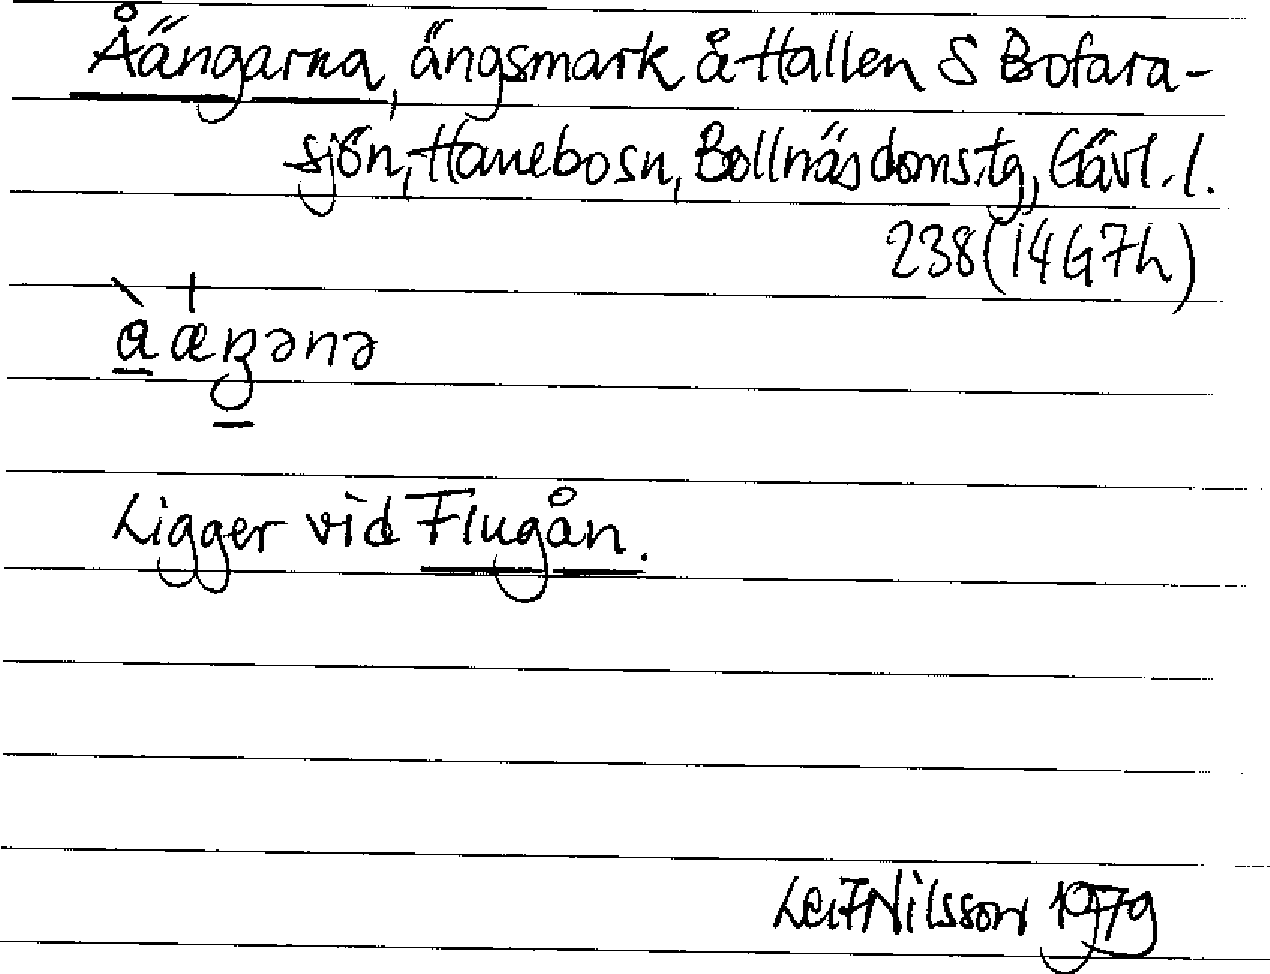 Åängarna, ängsmark å Hallen S Bofara-
sjön, Hanebo sn, Bollnäs domstg, Gävl. l.
238 (14G7h)
Ligger vid Flugån.
Leif Nilsson 1979